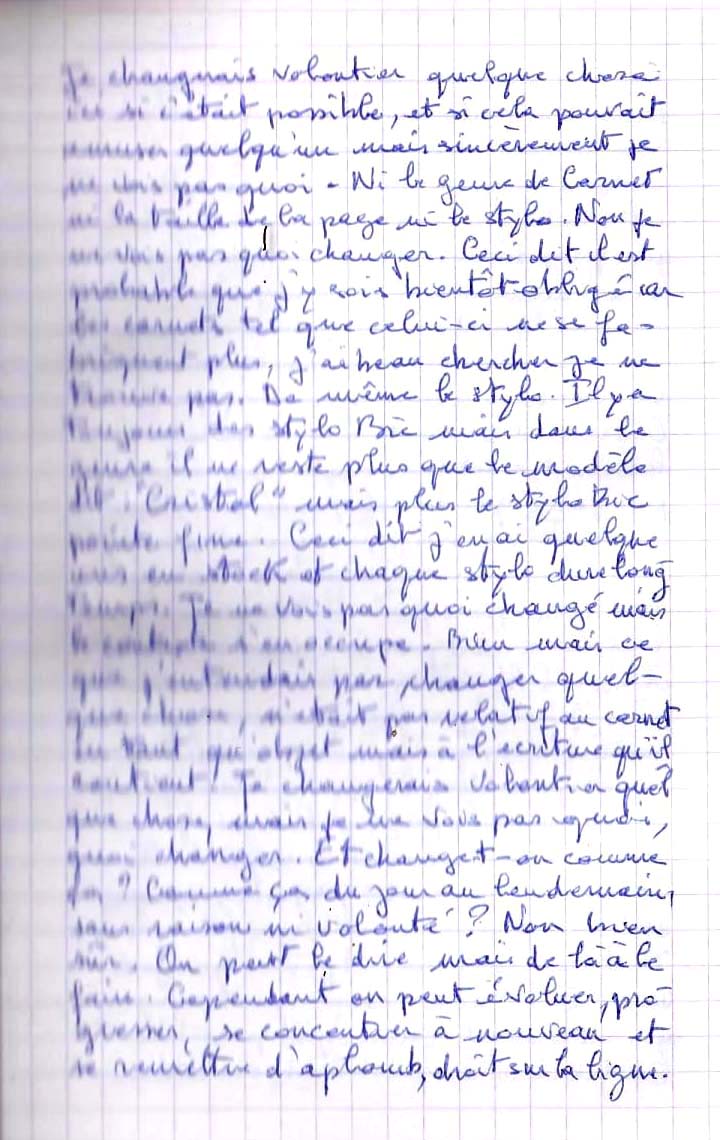 Je changerais volontier quelque chose
ici si c'était possible, et si cela pouvait
amuser quelqu'un mais sincèrement je
ne vois pas quoi - Ni le genre de Carnet
ni la taille de la page ni le stylo. Non je
ne vois pas quoi changer. Ceci dit il est
probable que j'y sois bientôt obligé car
des carnets tel que celui-ci ne se fa-
briquent plus, j'ai beau chercher je ne
trouve pas. De même le stylo. Il y a
toujours des stylo Bic mais dans le
genre il ne reste plus que le modèle
dit "Cristal" mais plus le stylo Bic
pointe fine. Ceci dit j'en ai quelque
uns en stock et chaque stylo dure long
temps. Je ne vois pas quoi changé mais
le s'en occupe. Bien mais ce
que j'entendais par changer quel-
que chose, n'était pas relatif au carnet
en tant qu'objet mais à l'écriture qu'il
contient! Je changerais volontier quel
que chose, mais je ne vois pas quoi,
quoi changer. Et change-t-on comme
ça? Comme ça du jour au lendemain,
sans raison ni volonté? Non bien
sûr. On peut le dire mais de là à le
faire. Cependant on peut évoluer, pro-
gresser, se concentrer à nouveau et
se remettre d'aplomb, droit sur la ligne.